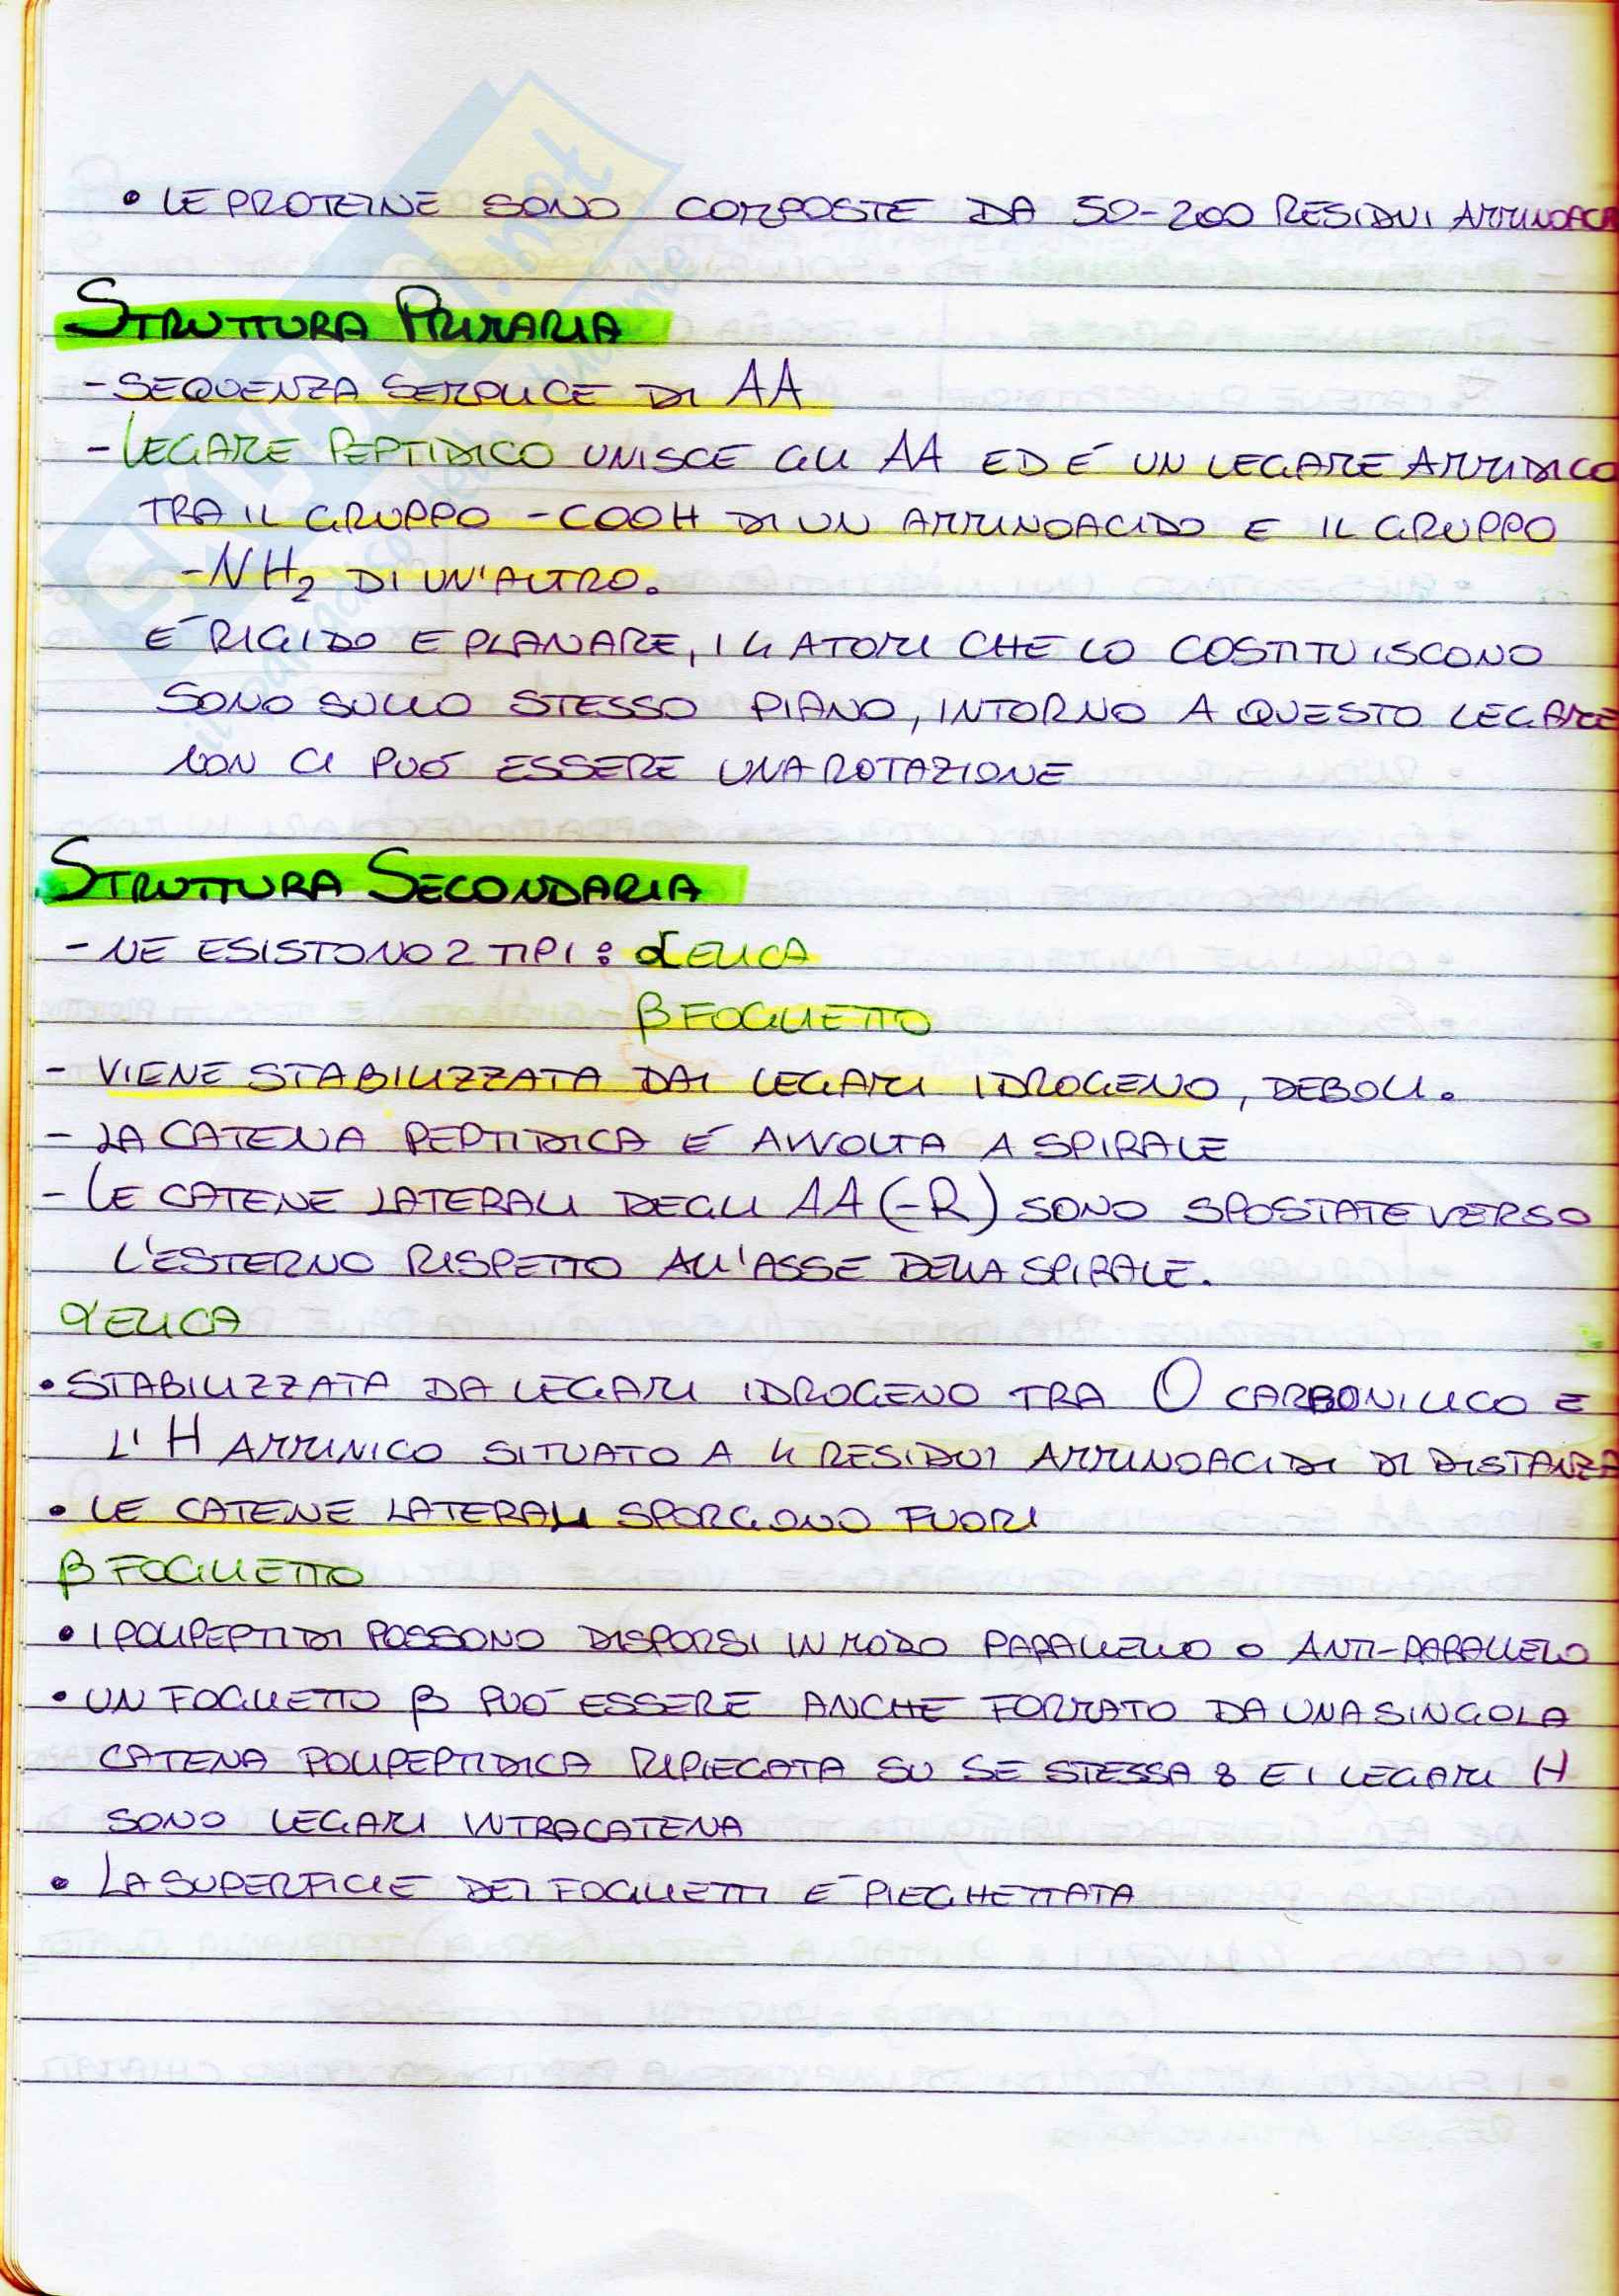 • LE PROTEINE SONO COMPOSTE DA 50-200 RESIDUI AMMINOACI
STRUTTURA PRIMARIA
- SEQUENZA SEMPLICE DI AA
- LEGAME PEPTIDICO UNISCE GLI AA ED É UN LEGAME AMMIDICO
TRA IL GRUPPO -COOH DI UN AMMINOACIDO E IL GRUPPO
-NH₂ DI UN'ALTRO.
É RIGIDO E PLANARE, I 4 ATOMI CHE LO COSTITUISCONO
SONO SULLO STESSO PIANO, INTORNO A QUESTO LEGAME
NON CI PUÓ ESSERE UNA ROTAZIONE
STRUTTURA SECONDARIA
- NE ESISTONO 2 TIPI: α ELICA
β FOGLIETTO
- VIENE STABILIZZATA DAI LEGAMI IDROGENO, DEBOLI.
- LA CATENA PEPTIDICA É AVVOLTA A SPIRALE
- LE CATENE LATERALI DEGLI AA (-R) SONO SPOSTATE VERSO
L'ESTERNO RISPETTO ALL'ASSE DELLA SPIRALE.
α ELICA
• STABILIZZATA DA LEGAMI IDROGENO TRA O CARBONILICO E
L'H AMMINICO SITUATO A 4 RESIDUI AMMINOACIDI DI DISTANZA
• LE CATENE LATERALI SPORGONO FUORI
β FOGLIETTO
• I POLIPEPTIDI POSSONO DISPORSI IN MODO PARALLELO O ANTI-PARALLELO
• UN FOGLIETTO β PUÓ ESSERE ANCHE FORMATO DA UNA SINGOLA
CATENA POLIPEPTIDICA RIPIEGATA SU SE STESSA : E I LEGAMI H
SONO LEGAMI INTRACATENA
• LA SUPERFICIE DEI FOGLIETTI É PIEGHETTATA